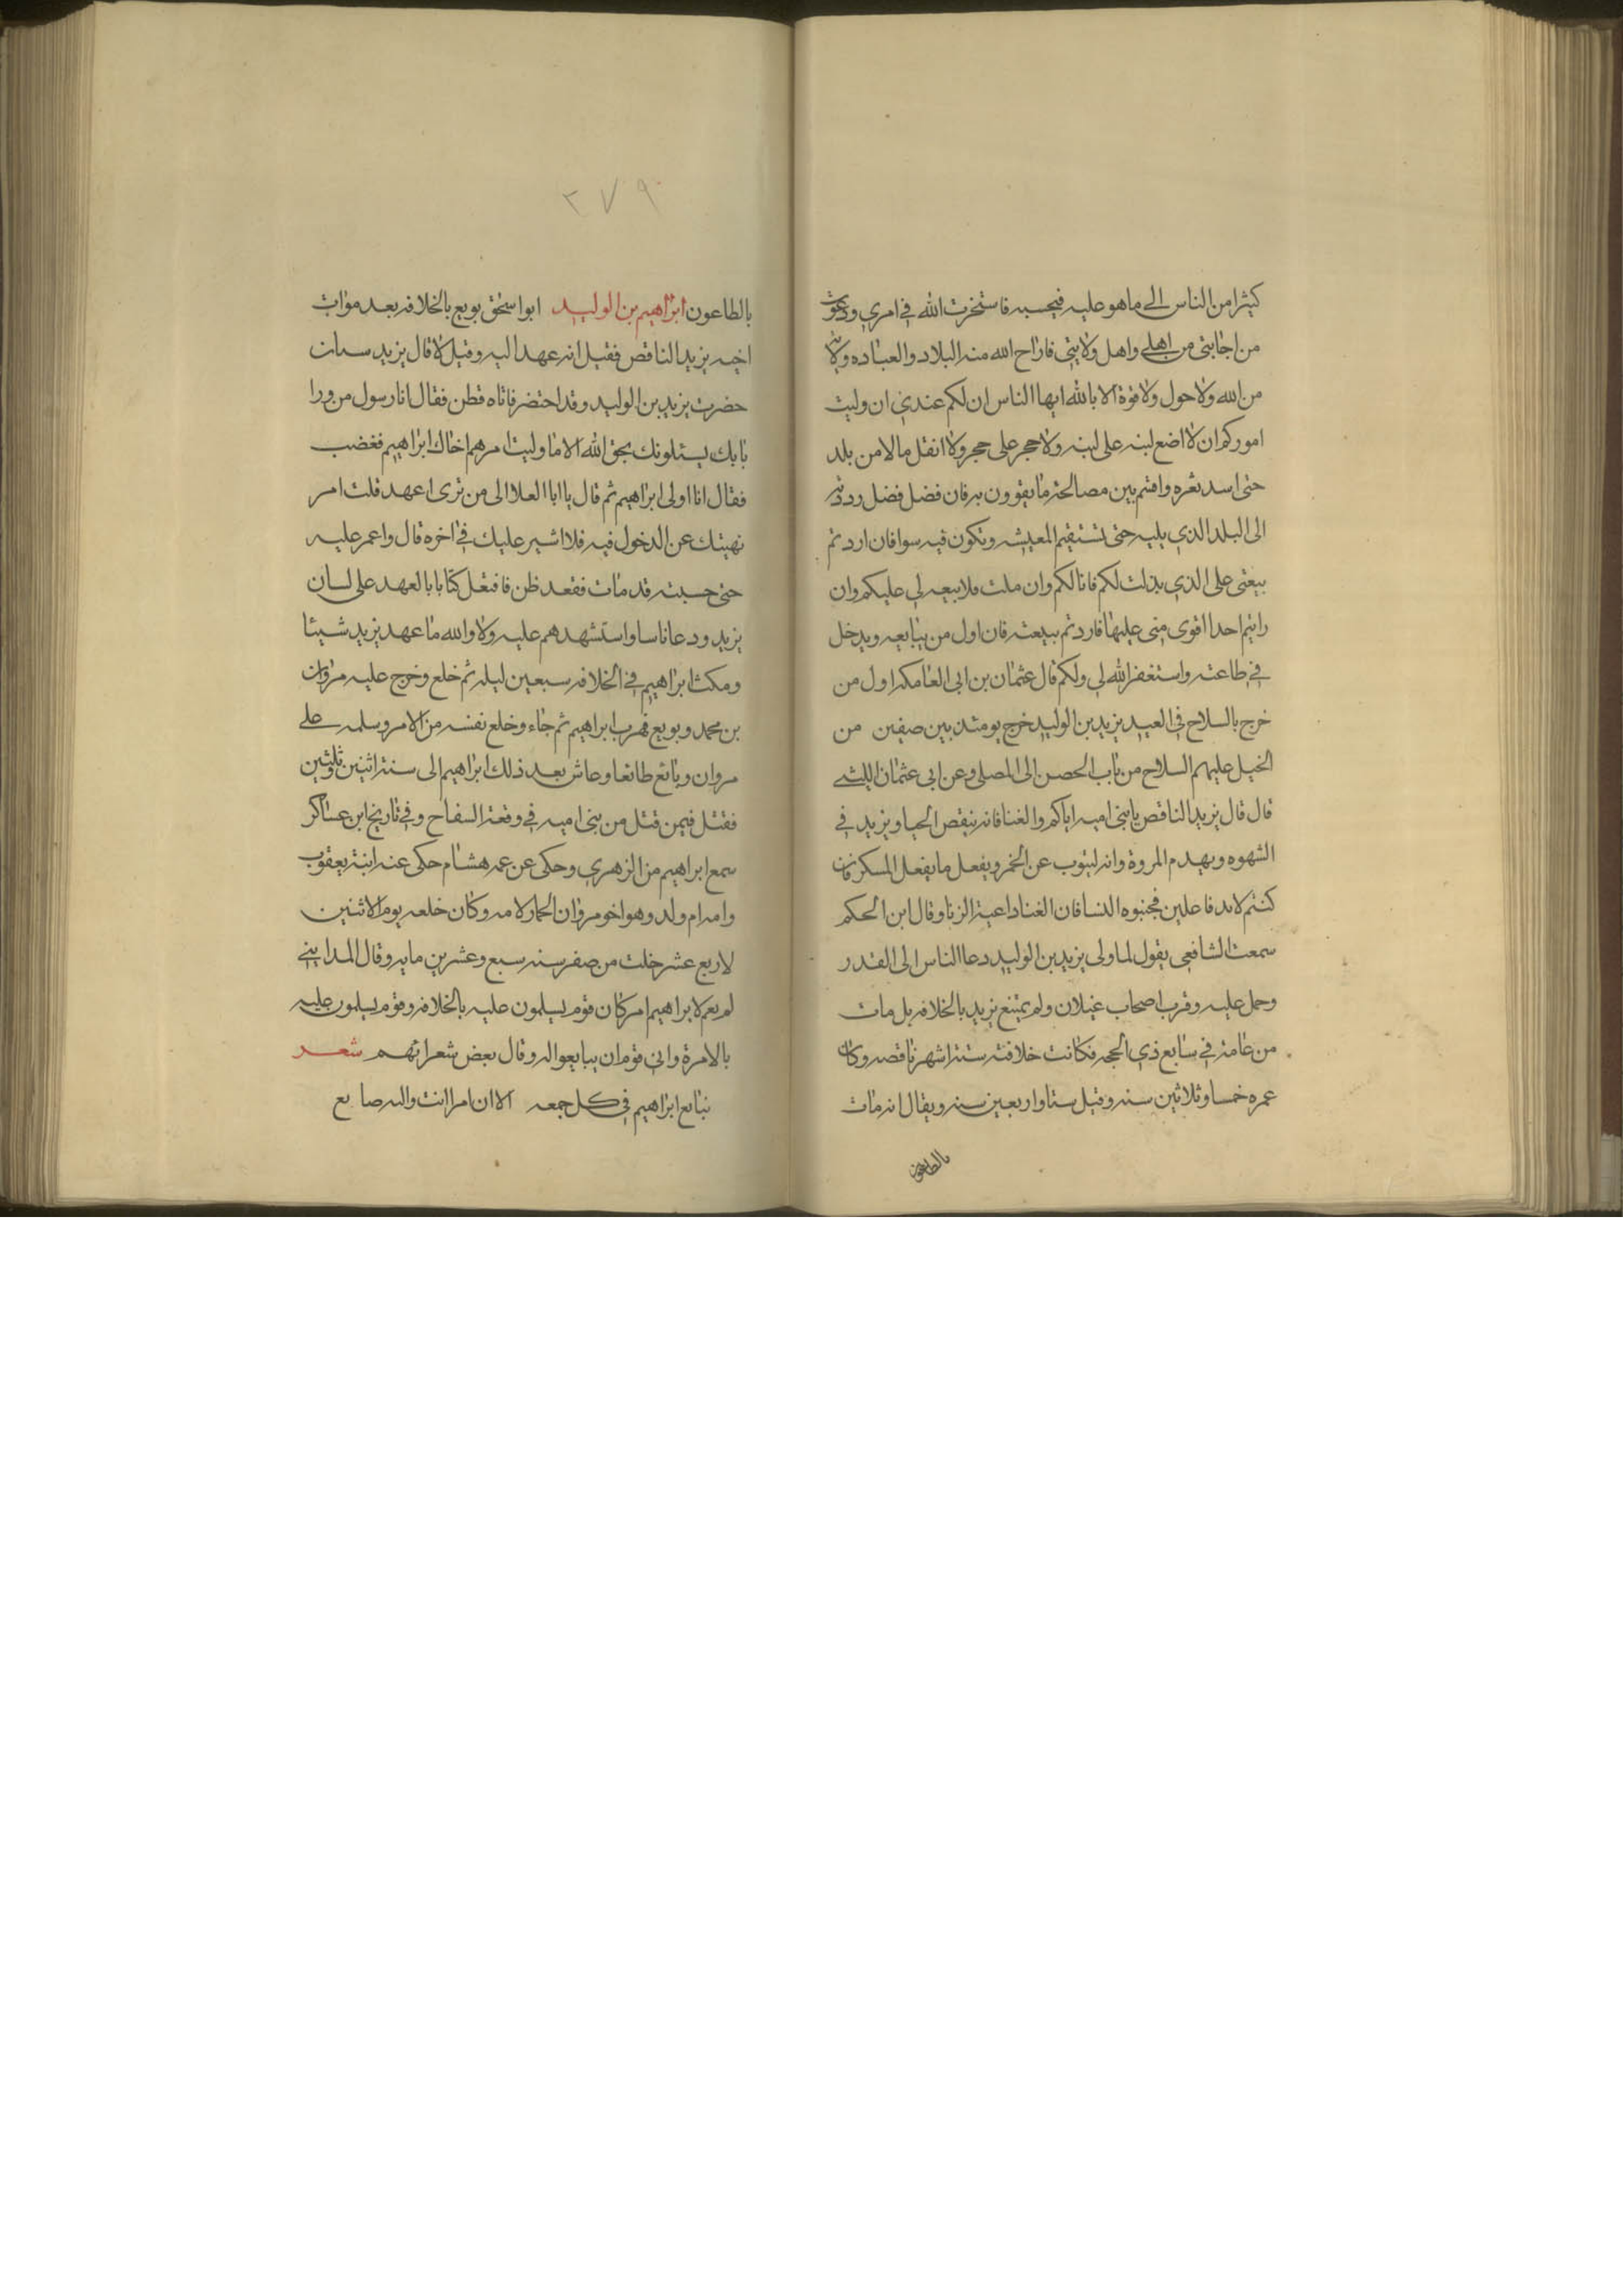 كثيرا من الناس الى ما هو عليه فيحسبه فاستخرت الله في امري ودعوت
من اجابني من اهلي واهل ولايتي فاراح الله منه البلاد والعباده ولاية
من الله ولا حول ولا قوة الا بالله ايها الناس ان لكم عندي ان وليت
اموركم ان لا اضع لبنه على لبنه ولا حجر على حجر ولا انقل مالا من بلد
حتى اسد ثغره واقتم بين مصالحته ما يقوون به فان فضل فضل رددته
الى البلد الذي يليه حتى تستقيم المعيشه وتكون فيه سوا فان اردتم
بيعتي على الذي بذلت لكم فانا لكم وان ملت فلا بيعه لي عليكم وان
رايتم احدا اقوى مني عليها فاردتم بيعته فان اول من يبايعه ويدخل
في طاعته واستغفر الله لي ولكم قال عثمان بن ابي العامكه اول من
خرج بالسلاح في العيد يزيد بن الوليد خرج يومئذ بين صفين من
الخيل عليهم السلاح من باب الحصن الى المصلى وعن ابي عثمان الليثي
قال قال يزيد الناقص يا بني اميه اياكم والغنا فانه ينقص الحيا ويزيد في
الشهوه ويهدم المروة وانه لينوب عن الخمر ويفعل ما يفعل المسكر فان
كنتم لابد فاعلين فجنبوه النسا فان الغنا داعية الزنا وقال ابن الحكم
سمعت الشافعي يقول لما ولى يزيد بن الوليد دعا الناس الى القدر
وحمل عليه وقرب اصحاب غيلان ولم يمتنع يزيد بالخلافه بل مات
من عامه في سابع ذي الحجه فكانت خلافته ستة اشهر ناقصه وكان
عمره خمسا وثلاثين سنه وقيل ستا واربعين سنه ويقال انه مات
بالطاعون
٢٧٩
بالطاعون ابراهيم بن الوليد ابو اسحق بويع بالخلافه بعد موات
اخيه يزيد الناقص فقيل انه عهد اليه وقيل لا قال يزيد سنان
حضرت يزيد بن الوليد وقد احتضر فاتاه قطن فقال انا رسول من ورا
بابك يسئلونك بحق الله الا ما وليت امرهم اخاك ابراهيم فغضب
فقال انا اولى ابراهيم ثم قال يا ابا العلا الى من ترى اعهد قلت امر
نهيتك عن الدخول فيه فلا اشير عليك في اخره قال واغمي عليه
حتى حسبته قد مات فقعد ظن فافتعل كتابا بالعهد على لسان
يزيد ودعا ناسا واستشهدهم عليه ولا والله ما عهد يزيد شيئا
ومكث ابراهيم في الخلافه سبعين ليله ثم خلع وخرج عليه مروان
بن محمد وبويع فهرب ابراهيم ثم جاء وخلع نفسه من الامر وسلمه على
مروان وبايع طائعا وعاش بعد ذلك ابراهيم الى سنة اثنين وثلثين
فقتل فيمن قتل من بني اميه في وقعة السفاح وفي تاريخ ابن عساكر
سمع ابراهيم من الزهري وحكى عن عمه هشام حكى عنه ابنه يعقوب
وامه ام ولد وهو اخو مروان الحمار لامه وكان خلعه يوم الاثنين
لاربع عشر خلت من صفر سنه سبع وعشرين مايه وقال المدايني
لم يعم لابراهيم امر كان قوم يسلمون عليه بالخلافه وقوم يسلمون عليه
بالامرة وابى قوم ان يبايعوا له وقال بعض شعرائهم شعر
نبايع ابراهيم في كل جمعه الا ان امرا انت واليه ضايع